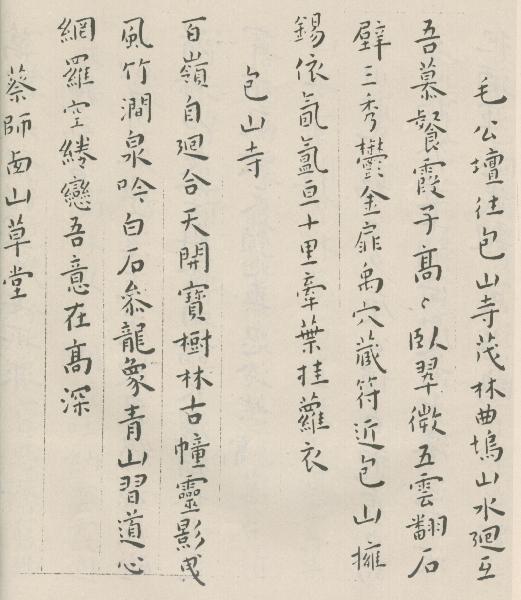 毛公壇往包山寺茂林曲塢山水廻互
吾慕餐霞子高〻臥翠微五雲翻石
壁三秀鬱金扉禹穴藏符近包山擁
錫依氤氳亘十里牽葉挂蘿衣
包山寺
百嶺自廻合天開寶樹林古幢靈影曳
風竹澗泉吟白石參龍象青山習道心
網羅空綣戀吾意在高深
蔡師卣山草堂